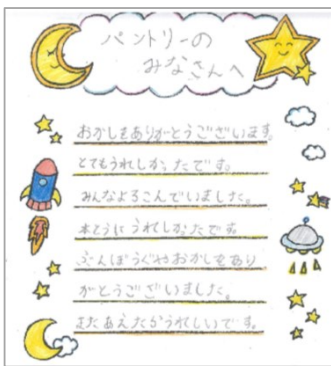 パントリーの
みなさんへ
おかしをありがとうございます。
とてもうれしかったです。
みんなよろこんでいました。
本とうにうれしかったです
ぶんぼうぐやおかしをあり
がとうございました。
またあえたらうれしいです。